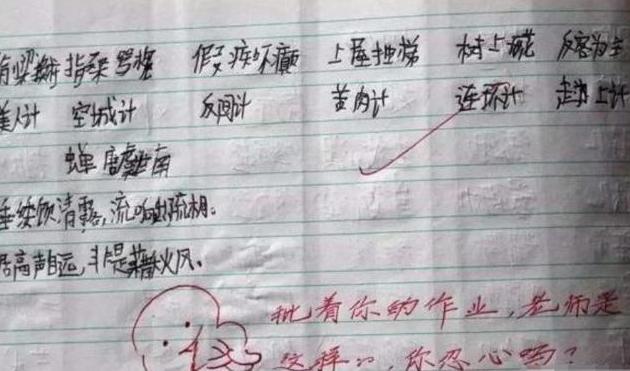 指桑骂槐 假痴不癫 上屋抽梯 树上开花 反客为主
美人计 空城计 反间计 苦肉计 连环计 走为上计
蝉 唐 虞世南
垂緌饮清露,流响出疏桐。
居高声自远,非是藉秋风。
批着你的作业,老师是
这样的,你忍心吗?